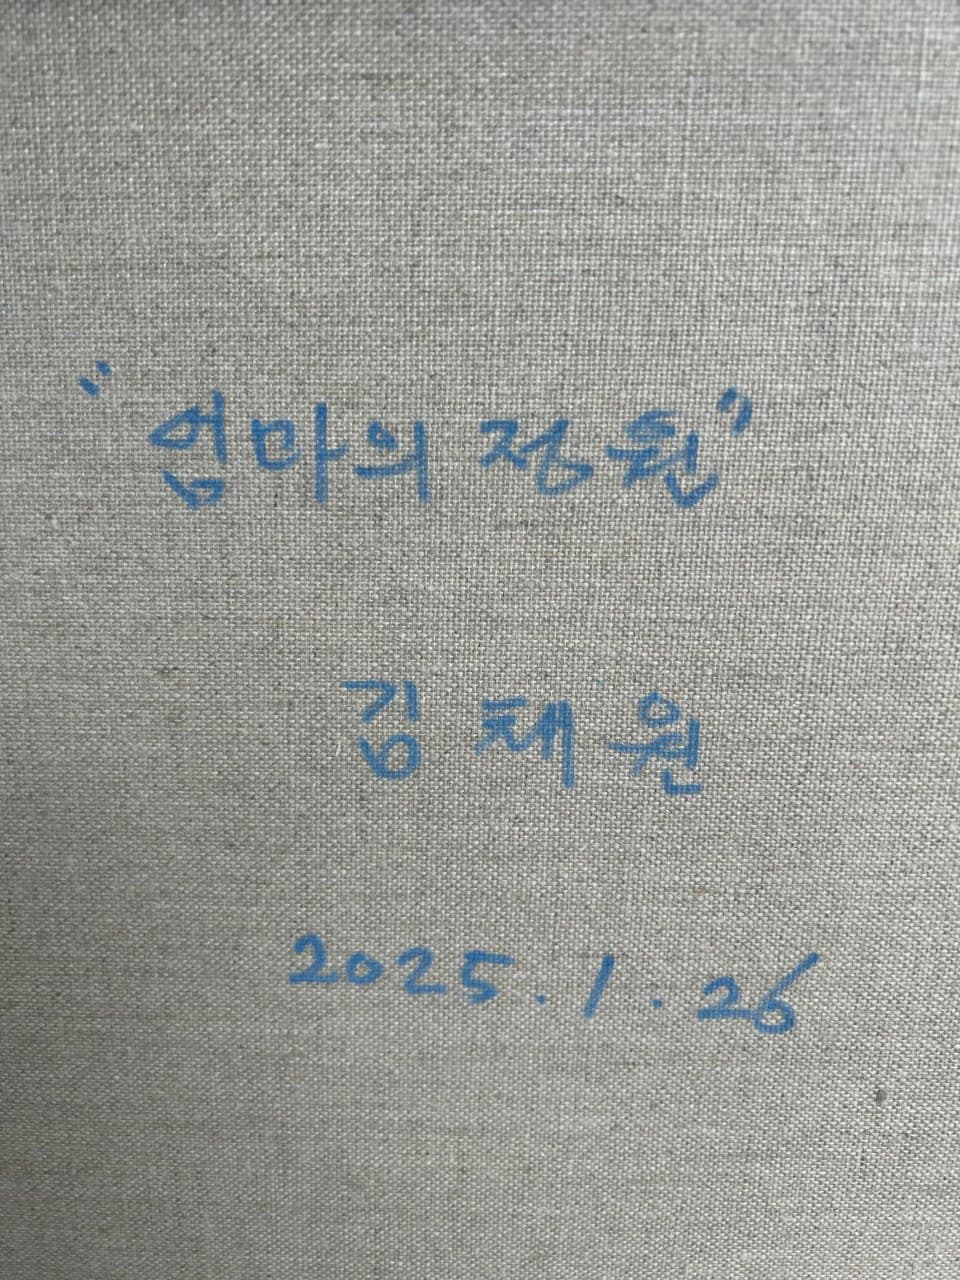 "엄마의 정원"
김채원
2025.1.26